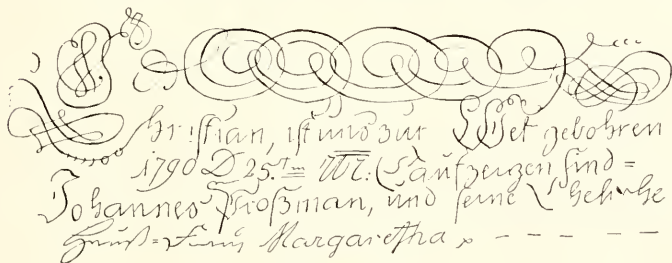 Christian, ist uns zur Welt gebohren
1790 D 25.tm M: Taufzeugen sind=
Johannes Großman, und seine Eheliche
Hauß=Frau Margaretha